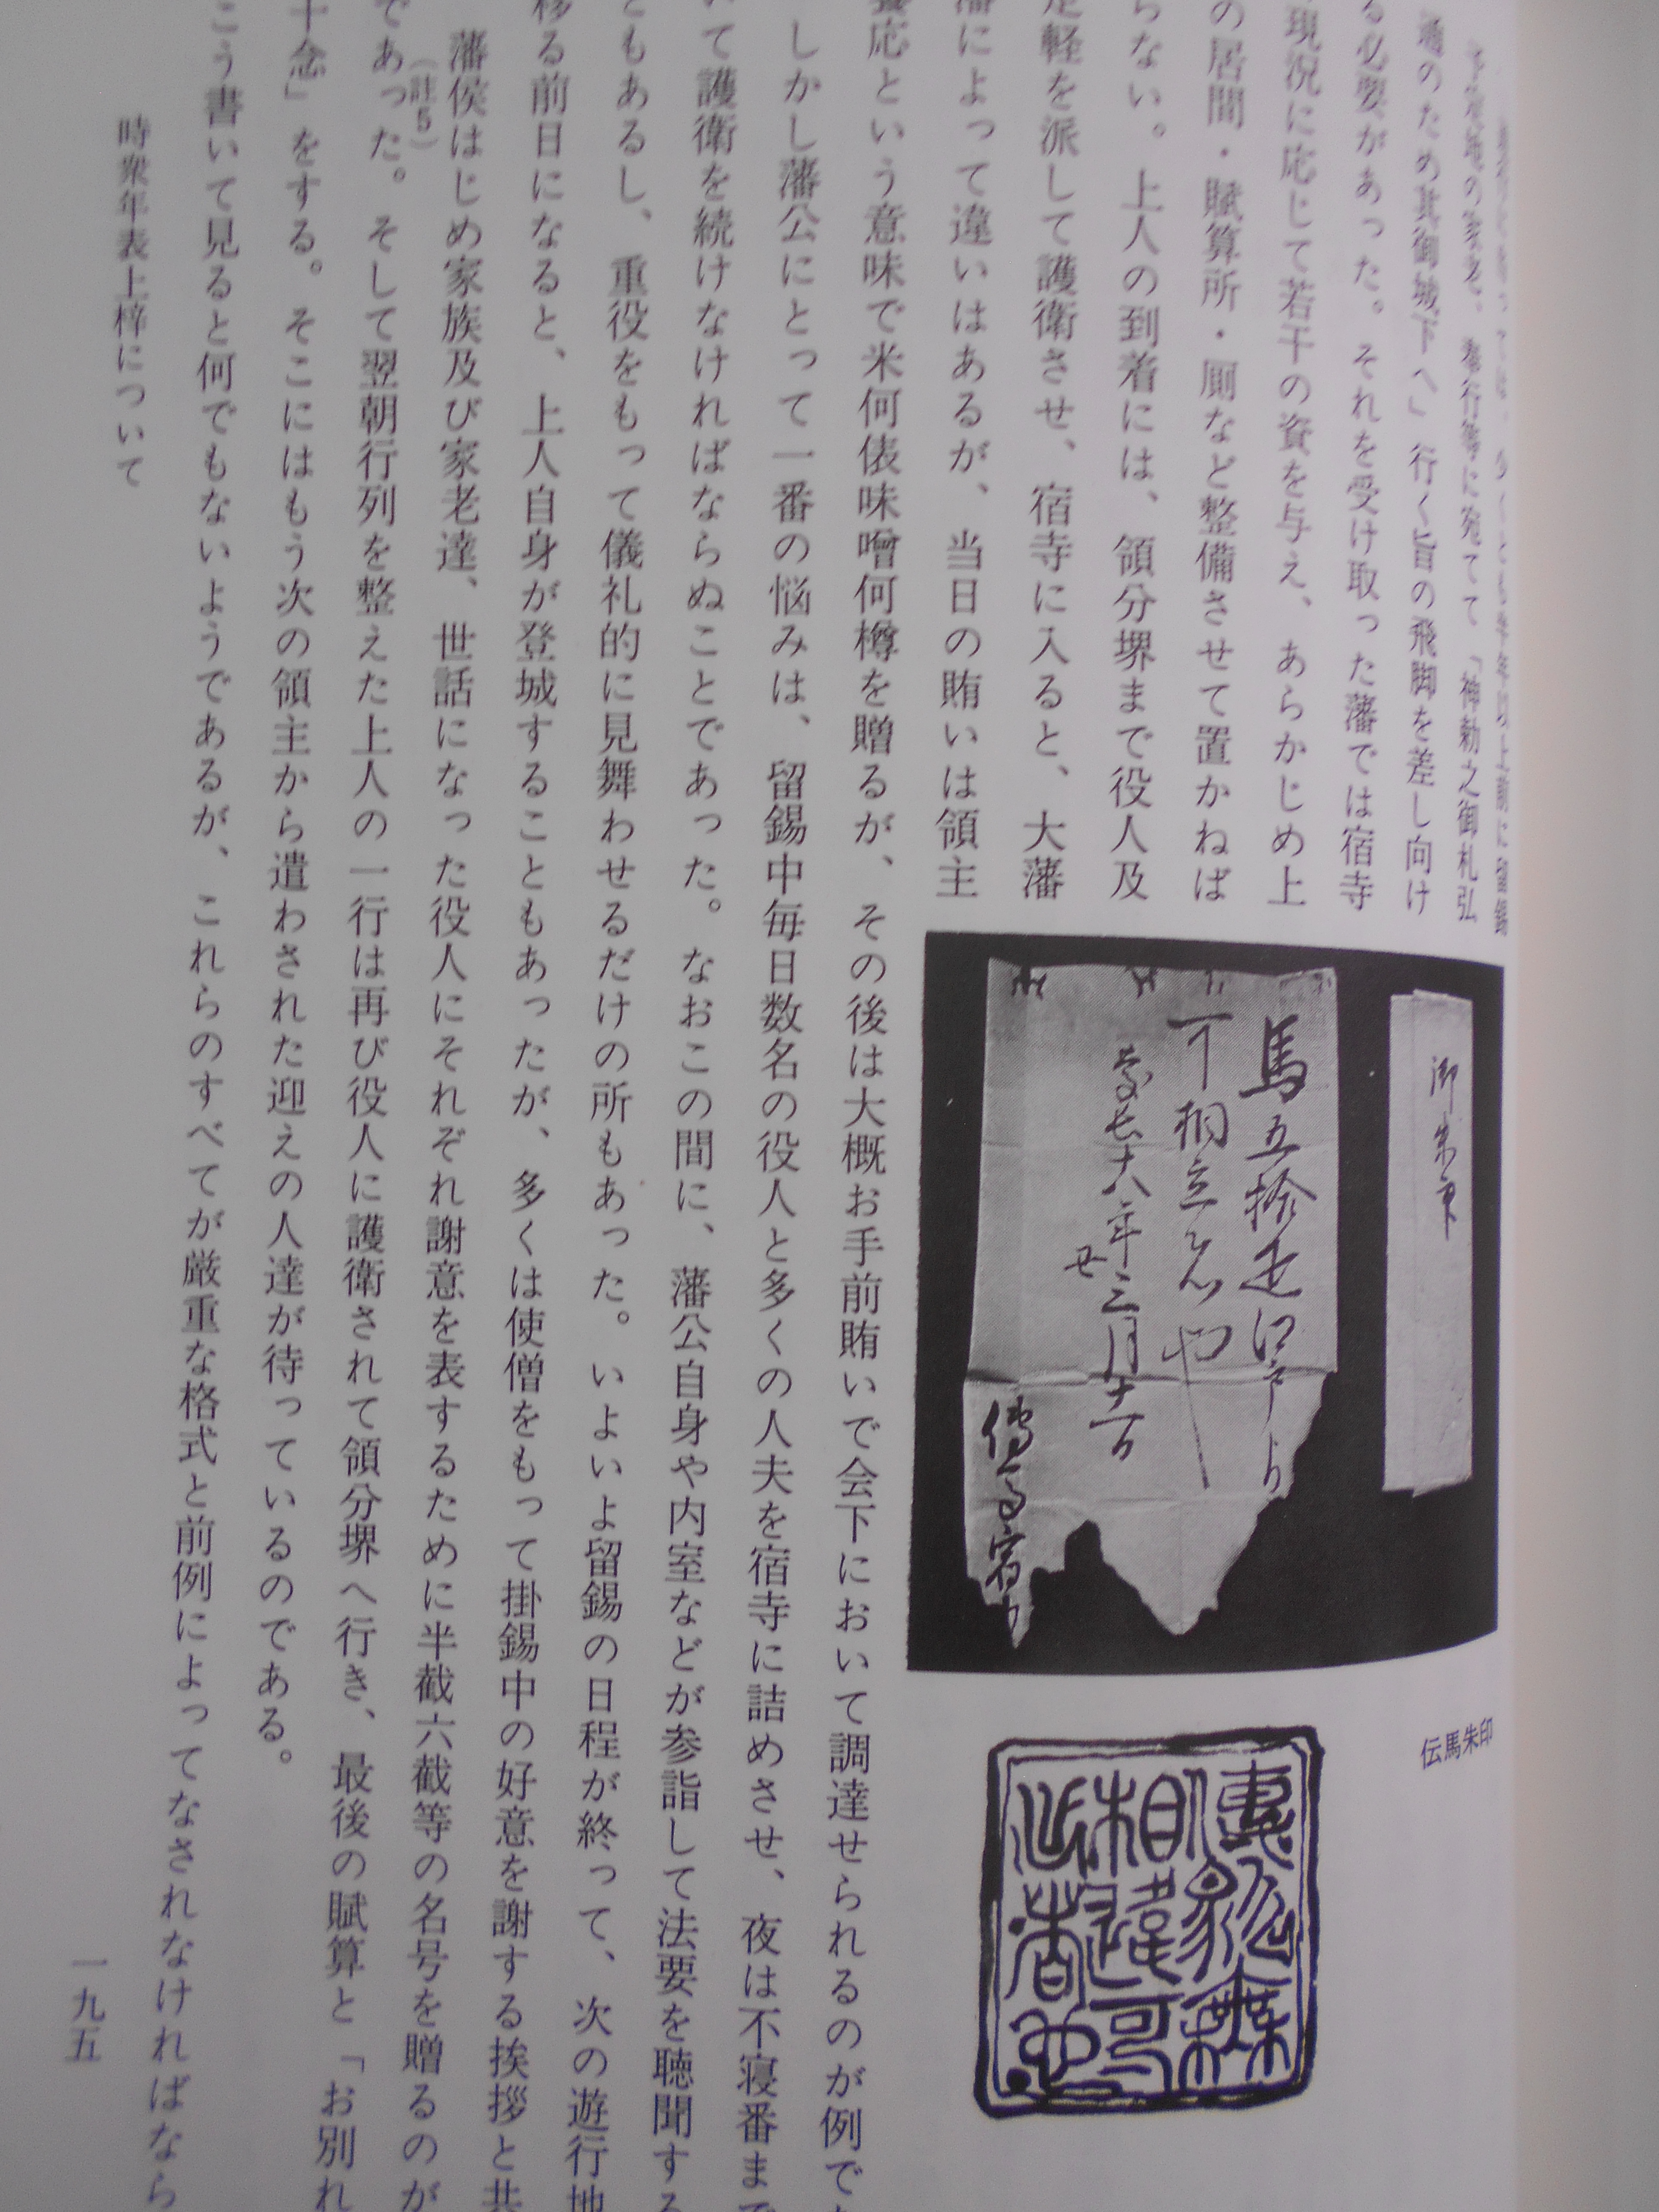 通のため其御城下へ」行く旨の飛脚を差し向け
る必要があった。それを受け取った藩では宿寺
現況に応じて若干の資を与え、あらかじめ上
の居間・賦算所・厠など整備させて置かねば
らない。上人の到着には、領分堺まで役人及
足軽を派して護衛させ、宿寺に入ると、大藩
藩によって違いはあるが、当日の賄いは領主
饗応という意味で米何俵味噌何樽を贈るが、その後は大概お手前賄いで会下において調達せられるのが例で
しかし藩公にとって一番の悩みは、留錫中毎日数名の役人と多くの人夫を宿寺に詰めさせ、夜は不寝番まで
いて護衛を続けなければならぬことであった。なおこの間に、藩公自身や内室などが参詣して法要を聴聞する
ともあるし、重役をもって儀礼的に見舞わせるだけの所もあった。いよいよ留錫の日程が終って、次の遊行地
移る前日になると、上人自身が登城することもあったが、多くは使僧をもって掛錫中の好意を謝する挨拶と共
藩侯はじめ家族及び家老達、世話になった役人にそれぞれ謝意を表するために半截六截等の名号を贈るのが
(註5)
であった。そして翌朝行列を整えた上人の一行は再び役人に護衛されて領分堺へ行き、最後の賦算と「お別れ
十念」をする。そこにはもう次の領主から遣わされた迎えの人達が待っているのである。
こう書いて見ると何でもないようであるが、これらのすべてが厳重な格式と前例によってなされなければなら
時衆年表上梓について
一九五
御朱印
馬五拾疋江戸より
可相立者也
慶長十八年三月十一日
伝馬宿中
伝馬朱印
伝馬無
相違可
出者也